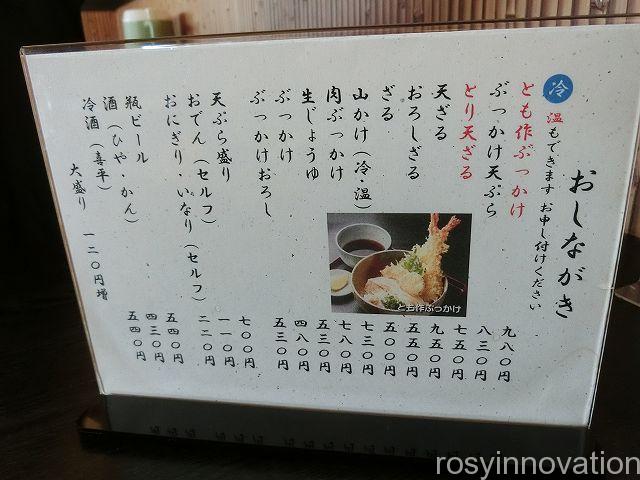 おしながき
冷 温もできます お申し付けください
とも作ぶっかけ 九八〇円
ぶっかけ天ぷら 八三〇円
とり天ざる 七五〇円
天ざる 九五〇円
おろしざる 五五〇円
ざる 五〇〇円
山かけ(冷・温) 七三〇円
肉ぶっかけ 七八〇円
生じょうゆ 五三〇円
ぶっかけ 四八〇円
ぶっかけおろし 五三〇円
天ぷら盛り 七〇〇円
おでん(セルフ) 一一〇円
おにぎり・いなり(セルフ) 二二〇円
瓶ビール 五四〇円
酒(ひや・かん) 四三〇円
冷酒(喜平) 五四〇円
大盛り 一二〇円増
とも作ぶっかけ
rosyinnovation